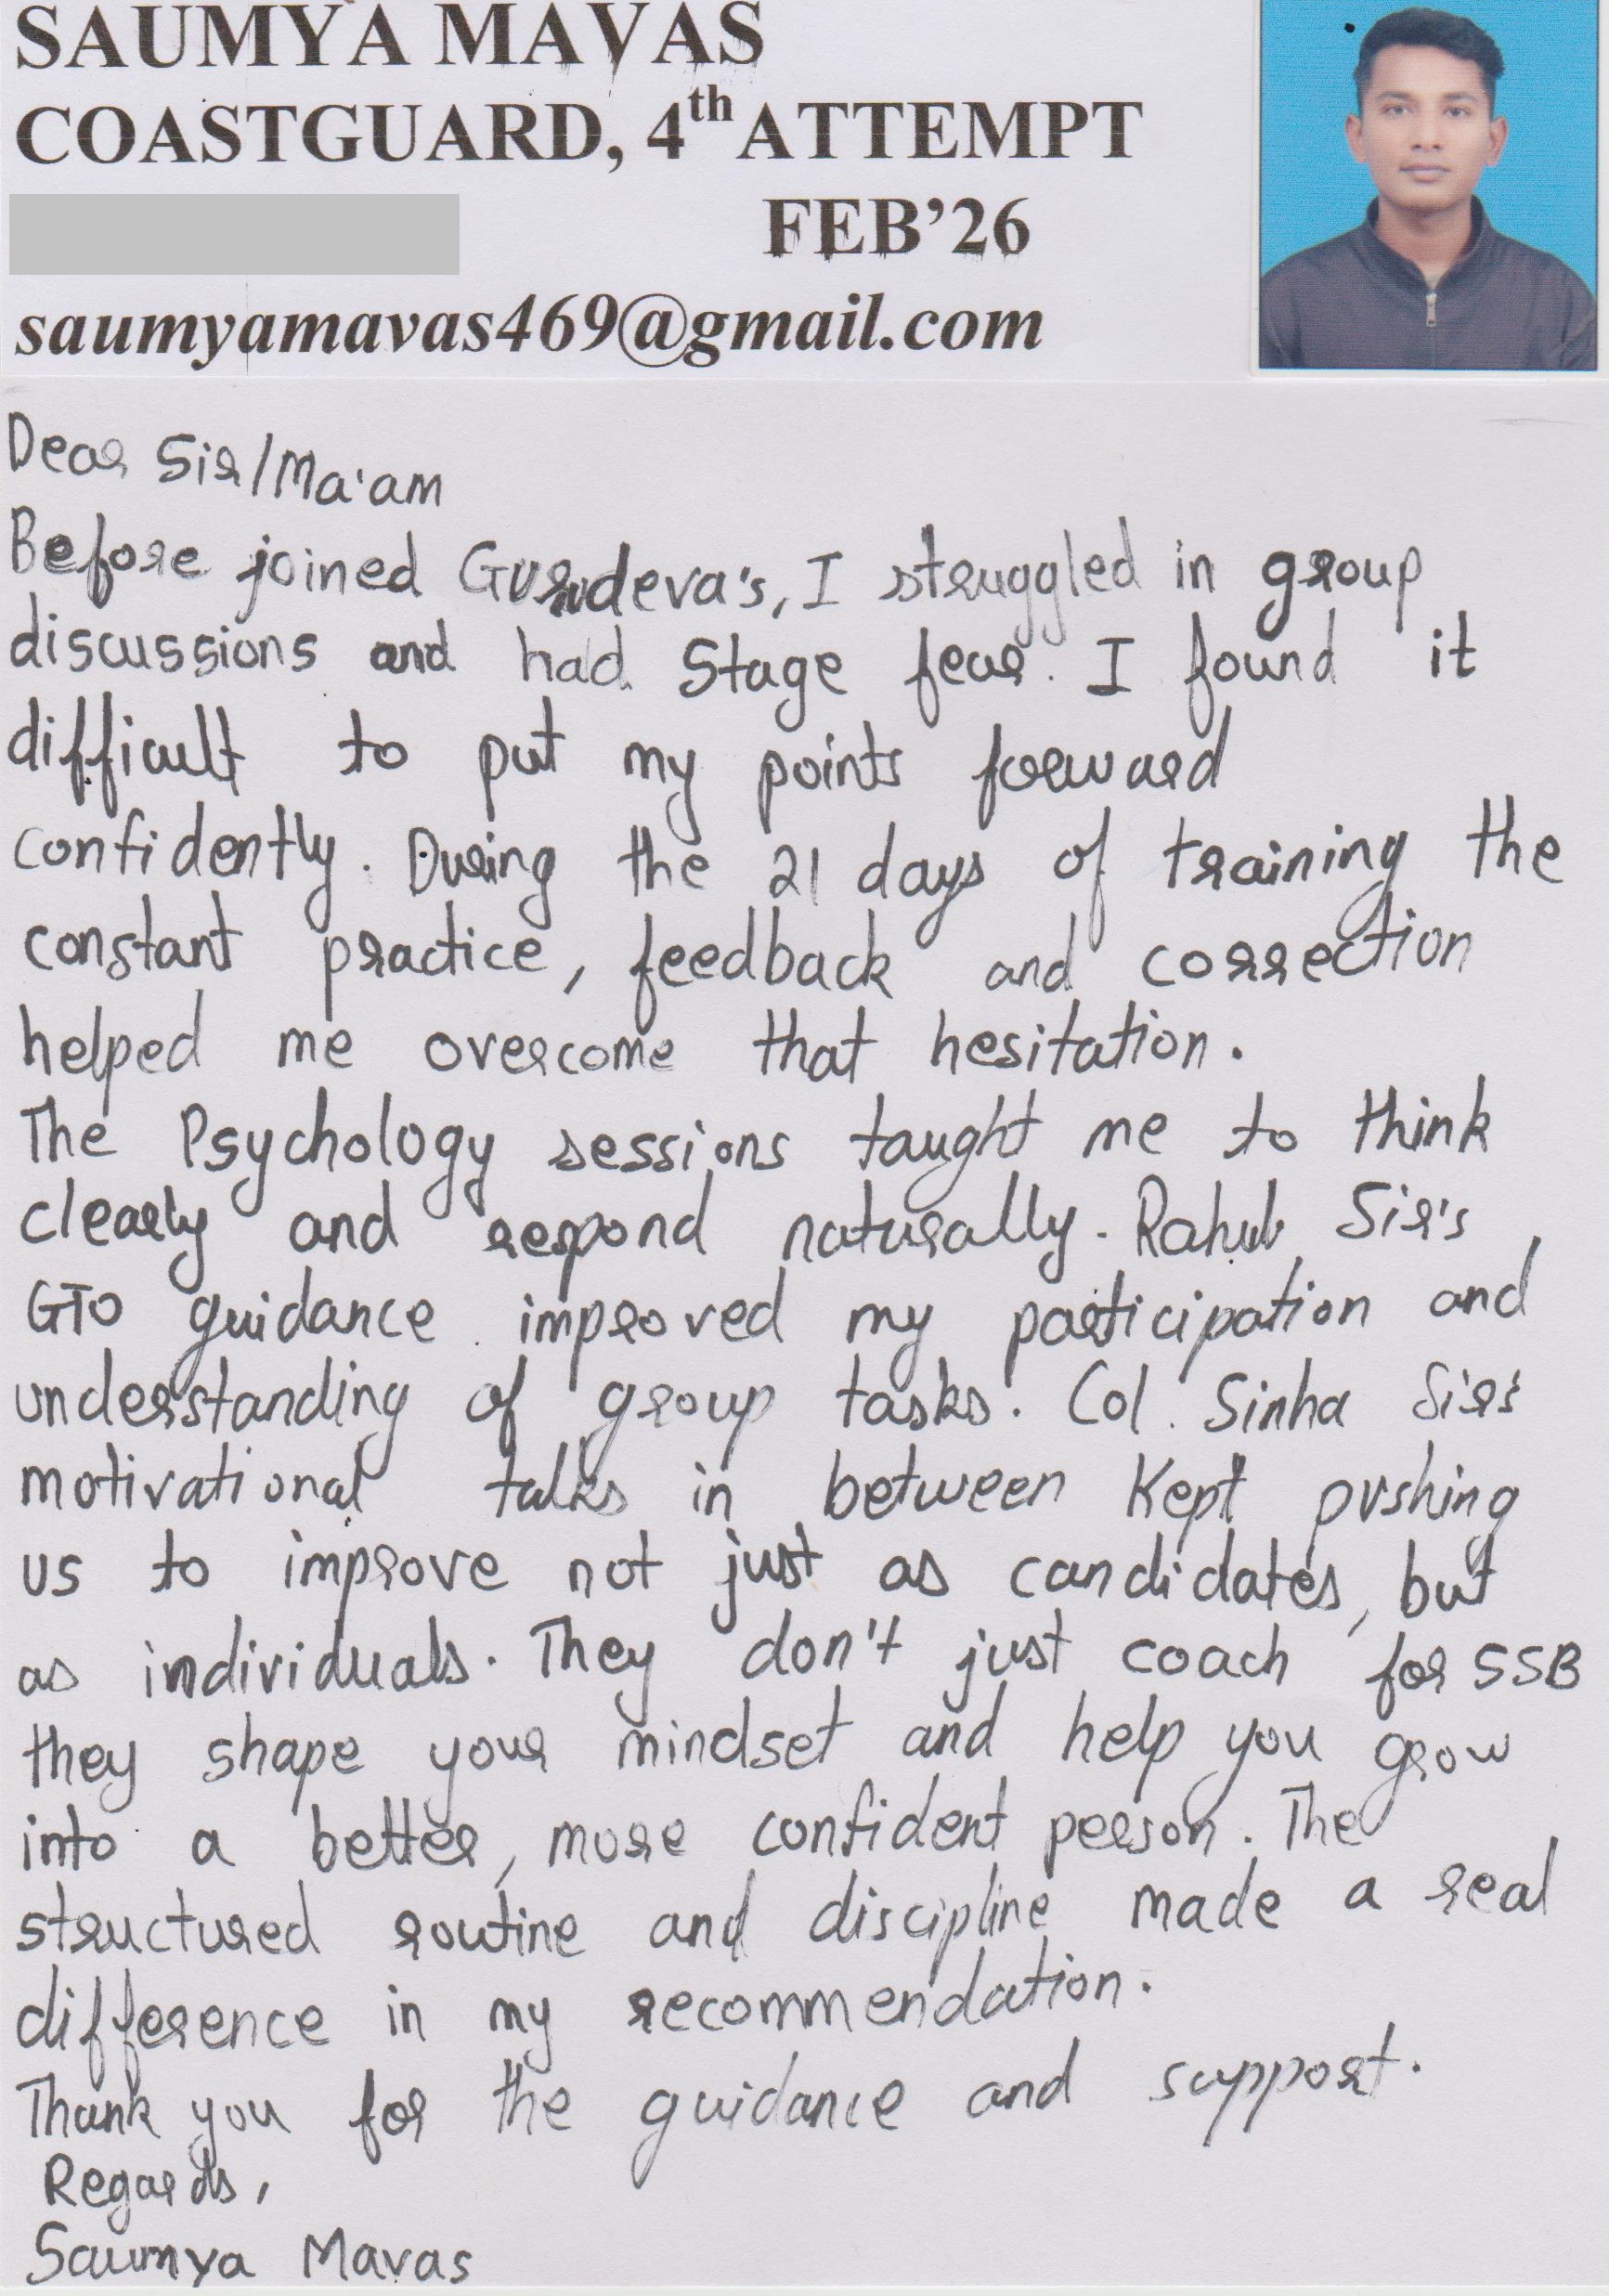 SAUMYA MAVAS
COASTGUARD, 4th ATTEMPT
FEB'26
saumyamavas469@gmail.com
Dear Sir/Ma'am
Before joined Gurudeva's, I struggled in group
discussions and had Stage fear. I found it
difficult to put my points forward
confidently. During the 21 days of training the
constant practice, feedback and correction
helped me overcome that hesitation.
The Psychology sessions taught me to think
clearly and respond naturally. Rahul Sir's
GTO guidance improved my participation and
understanding of group tasks. Col. Sinha Sir's
motivational talks in between Kept pushing
us to improve not just as candidates, but
as individuals. They don't just coach for SSB
they shape your mindset and help you grow
into a better, more confident person. The
structured routine and discipline made a real
difference in my recommendation.
Thank you for the guidance and support.
Regards,
Saumya Mavas